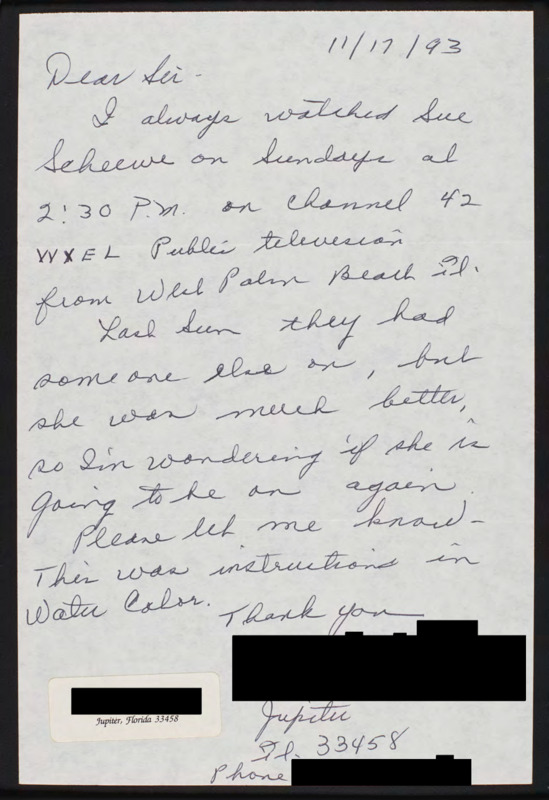 11/17/93
Dear Sir-
I always watched Sue
Scheewe on Sundays at
2:30 P.M. on channel 42
WXEL Public television
from West Palm Beach Fl.
Last Sun they had
someone else on, but
she was much better,
so I'm wondering if she is
going to be on again.
Please let me know-
This was instructions in
Water Color.
Thank you
Jupiter, Florida 33458
Jupiter
Fl. 33458
Phone